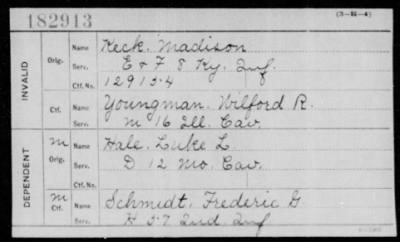 182913
(3-21-4)
INVALID
Orig. Name Keck, Madison
Serv. E & F 8 Ky. Inf.
Ctf. No. 129134
Ctf. Name Youngman, Wilford R.
Serv. M 16 Ill. Cav.
DEPENDENT
M Orig. Name Hale, Luke L.
Serv. D 12 Mo. Cav.
Ctf. No.
M Ctf. Name Schmidt, Frederic G
Serv. H 57 Ind. Inf